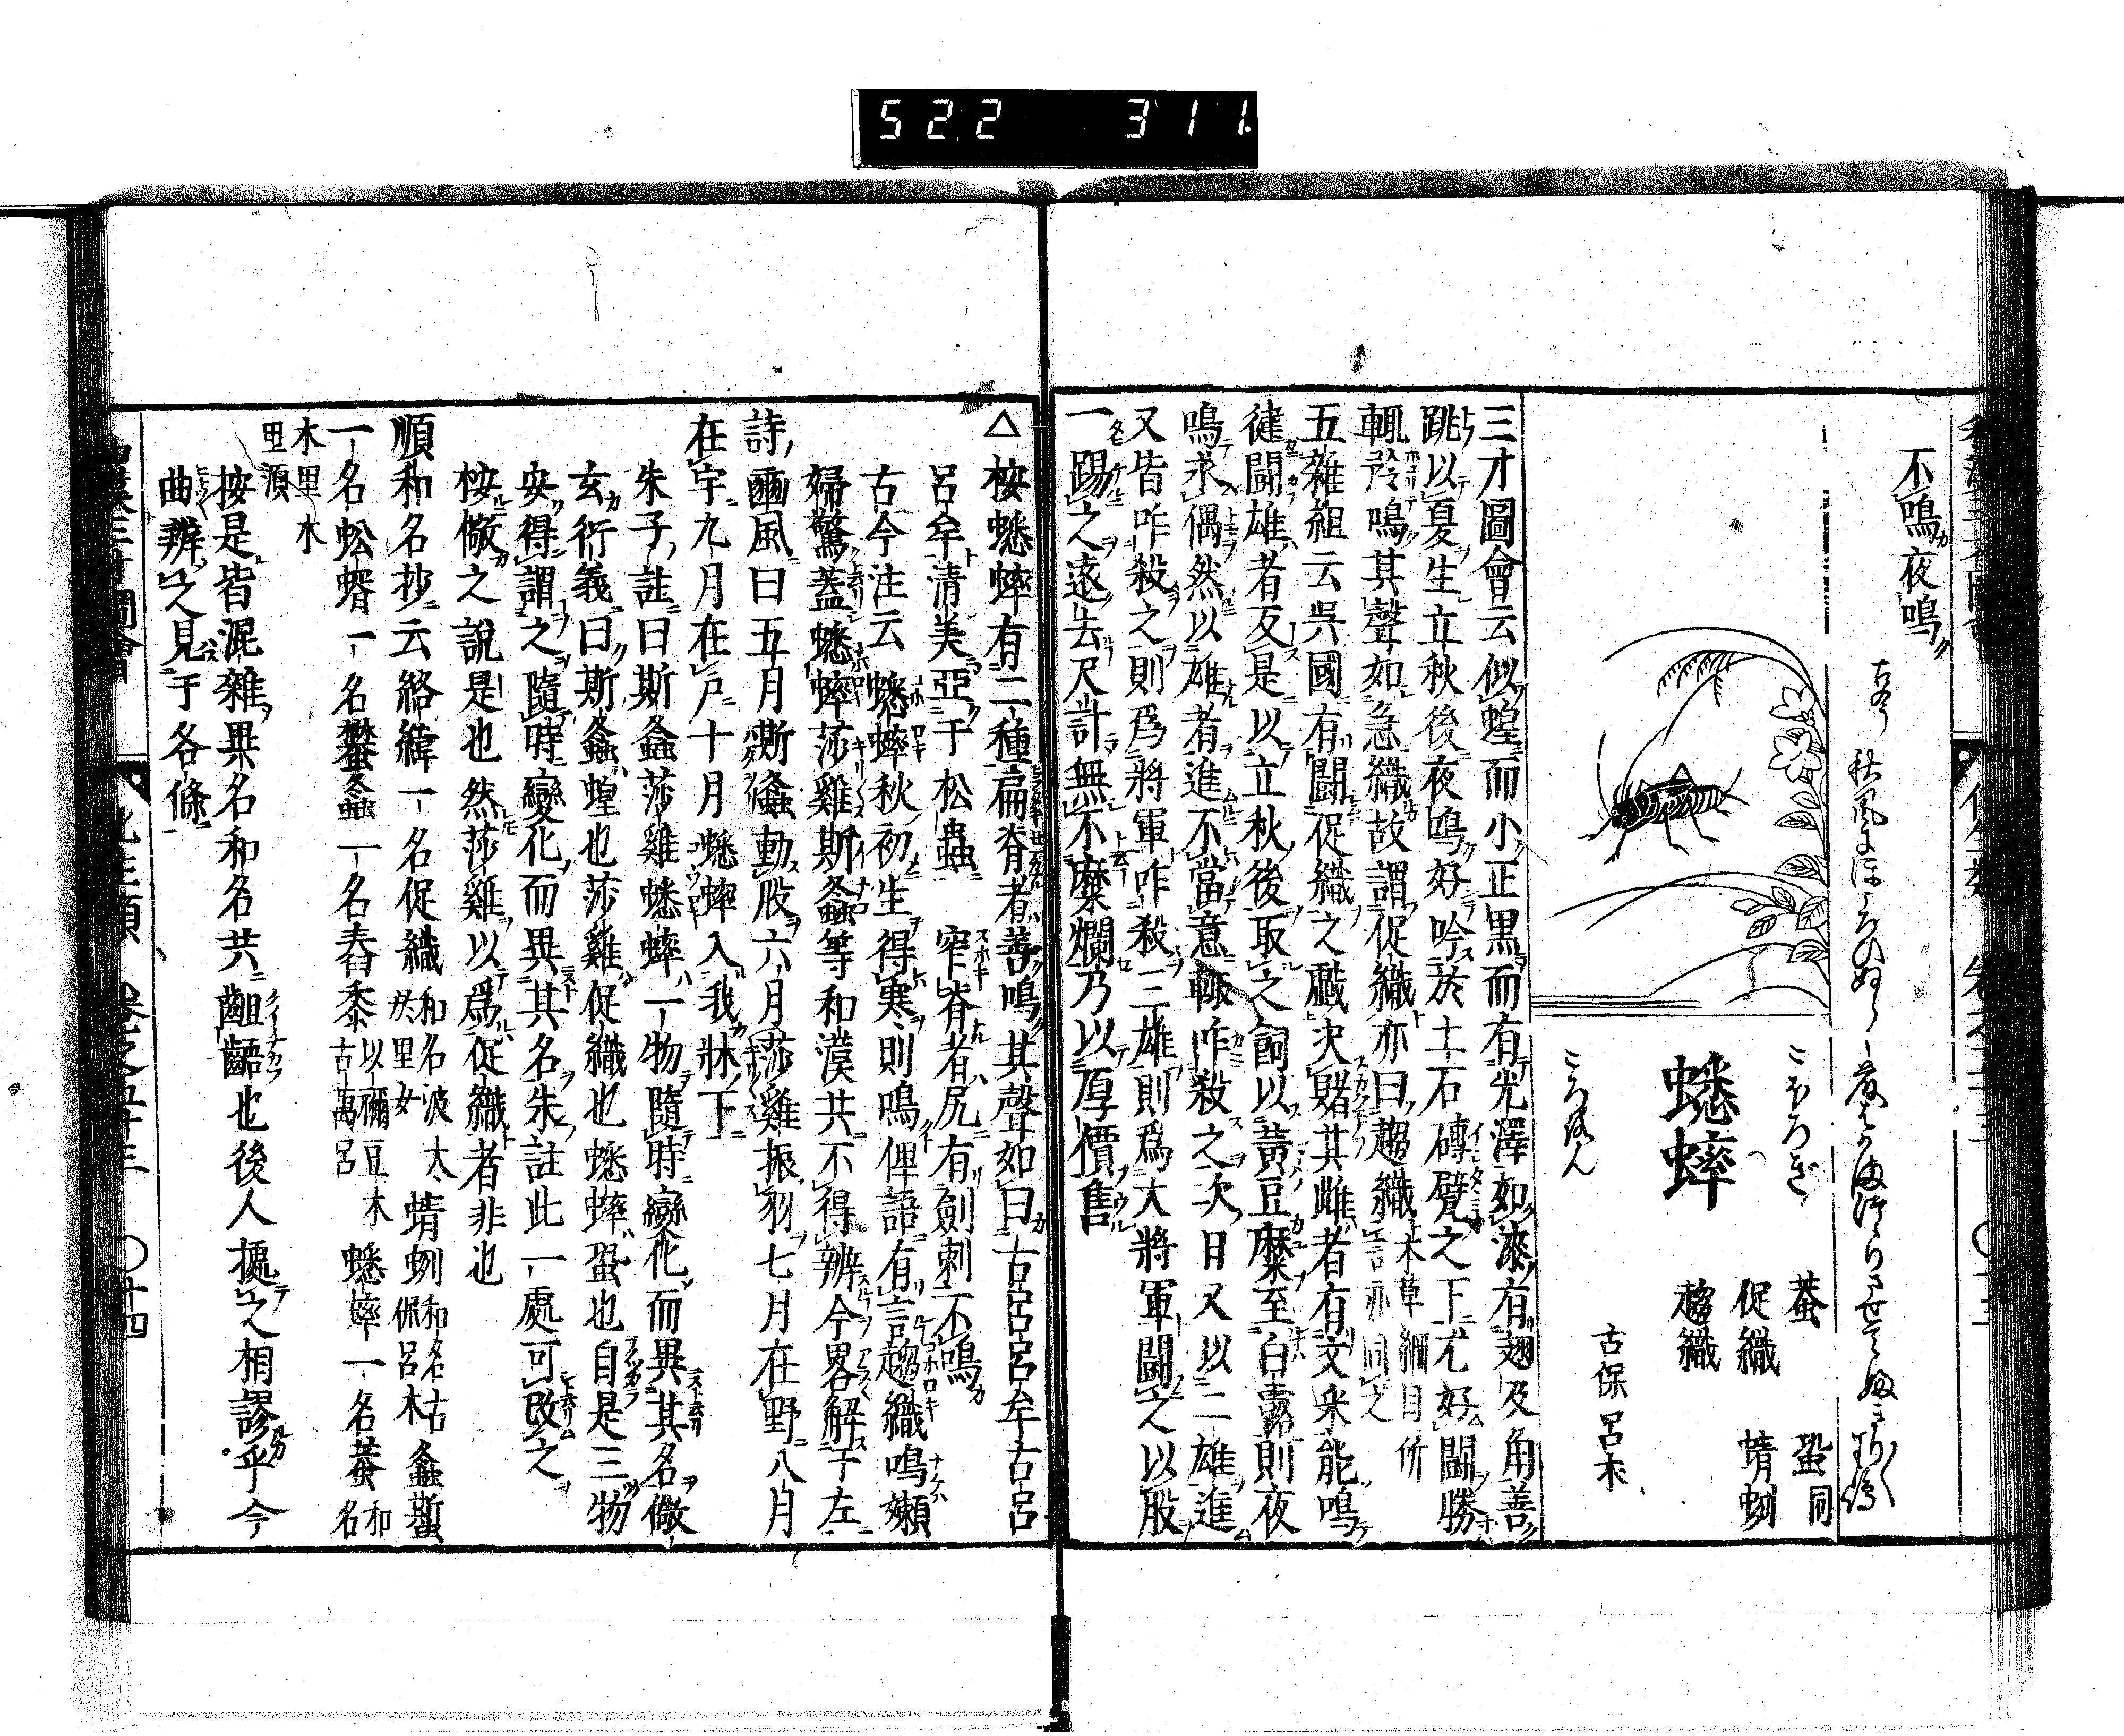 522 311.
不鳴夜鳴
こほろぎ
蟋蟀
ころろん
蛬 蛩同
促織 蜻蛚
趨織
古保呂木
三才圖會云似蝗而小正黒而有光澤如漆有翅及角善
跳以夏生立秋後夜鳴好吟於土石磚甓之下尤好闘勝
輒矜鳴其聲如急織故謂促織亦曰趨織
五雜組云吳國有闘促織之戲決賭其雌者有文采能鳴
健闘雄者反是以立秋後取之飼以黃豆麋至白露則夜
鳴求偶然以雄者進不當意輒咋殺之次日又以二雄進
又皆咋殺之則爲將軍咋殺三雄則爲大將軍闘之以股
一踢之遠去尺計無不糜爛乃以厚價售
△桉蟋蟀有二種扁脊者善鳴其聲如曰古呂呂牟古呂
呂牟清美亞于松蟲 窄脊者尻有劍刺不鳴
古今注云蟋蟀秋初生得寒則鳴俚語有言趨織鳴嬾
婦驚蓋蟋蟀莎雞斯螽等和漢共不得辨今畧解于左
詩豳風曰五月斯螽動股六月莎雞振羽七月在野八月
在宇九月在戸十月蟋蟀入我牀下
朱子註曰斯螽莎雞蟋蟀一物隨時變化而異其名儆
玄衍義曰斯螽蝗也莎雞促織也蟋蟀蛩也自是三物
安得謂之隨時變化而異其名朱註此一處可改之
桉儆之說是也然莎雞以爲促織者非也
順和名抄云絡緯一名促織 和名波太於里女 蜻蛚 和名古保呂木 螽蟴
一名蚣蝑一名蠜螽一名舂黍 以禰豆木古萬呂 蟋蟀一名蛬 和名
木里木里須
按是皆混雜異名和名共齟齬也後人據之相謬乎今
曲辨之見于各條